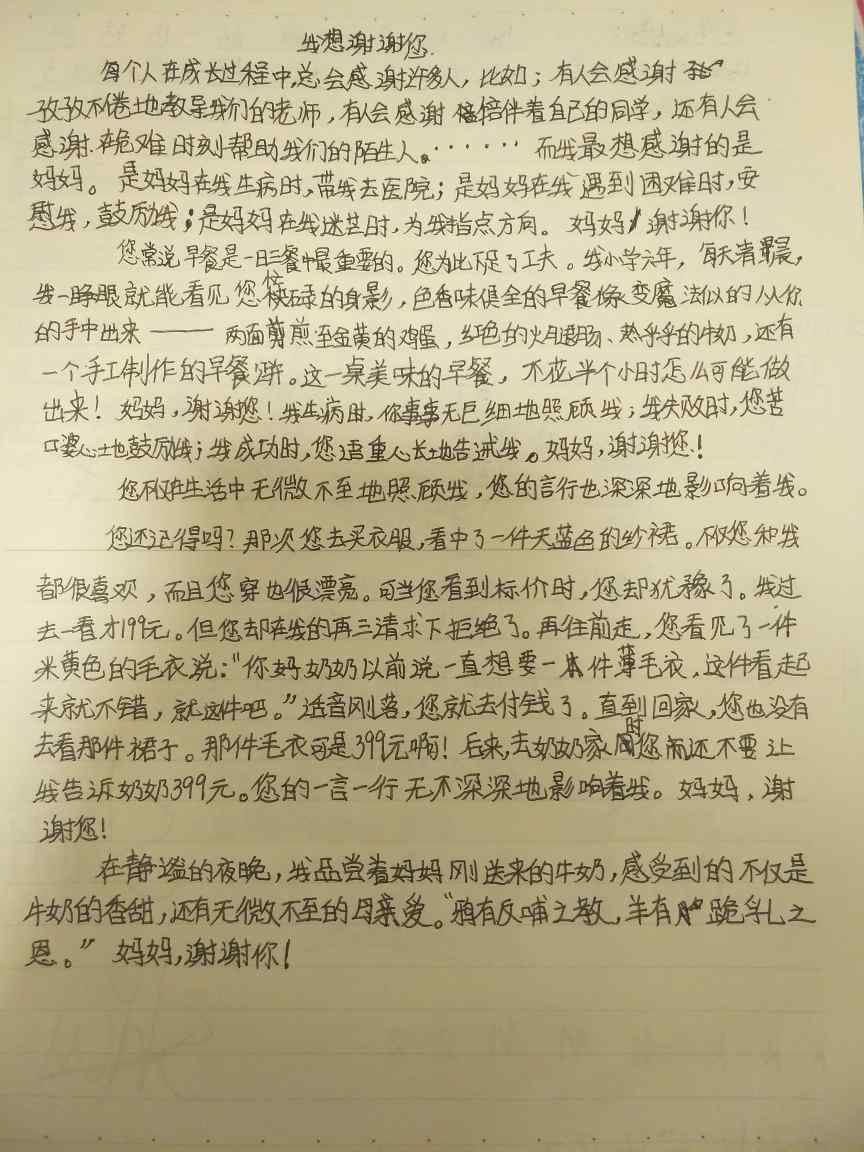 我想谢谢您
每个人在成长过程中,总会感谢许多人，比如；有人会感谢
孜孜不倦地教导我们的老师，有人会感谢陪伴着自己的同学，还有人会
感谢在危难时刻帮助我们的陌生人。······而我最想感谢的是
妈妈。是妈妈在我生病时，带我去医院；是妈妈在我遇到困难时，安
慰我，鼓励我；是妈妈在我迷茫时，为我指点方向。妈妈，谢谢你！
您常说早餐是一日三餐中最重要的。您为此下足了工夫。我小学六年，每天清晨，
我一睁眼就能看见您忙碌的身影，色香味俱全的早餐像变魔法似的从你
的手中出来——两面煎至金黄的鸡蛋，红色的火腿肠、热乎乎的牛奶，还有
一个手工制作的早餐饼。这一桌美味的早餐，不花半个小时怎么可能做
出来！妈妈，谢谢您！我生病时，你事无巨细地照顾我；我失败时，您苦
口婆心地鼓励我；我成功时，您语重心长地告诫我。妈妈，谢谢您！
您不仅在生活中无微不至地照顾我，您的言行也深深地影响着我。
您还记得吗？那次您去买衣服，看中了一件天蓝色的纱裙。不仅您和我
都很喜欢，而且您穿也很漂亮。可当您看到标价时，您却犹豫了。我过
去一看才199元。但您却在我的再三请求下拒绝了。再往前走，您看见了一件
米黄色的毛衣说：“你妈奶奶以前说一直想要一件薄毛衣，这件看起
来就不错，就这件吧。”话音刚落，您就去付钱了。直到回家，您也没有
去看那件裙子。那件毛衣可是399元啊！后来，去奶奶家时您还不要让
我告诉奶奶399元。您的一言一行无不深深地影响着我。妈妈，谢
谢您！
在静谧的夜晚，我品尝着妈妈刚送来的牛奶，感受到的不仅是
牛奶的香甜，还有无微不至的母亲爱。“鸦有反哺之教，羊有跪乳之
恩。”妈妈，谢谢你！